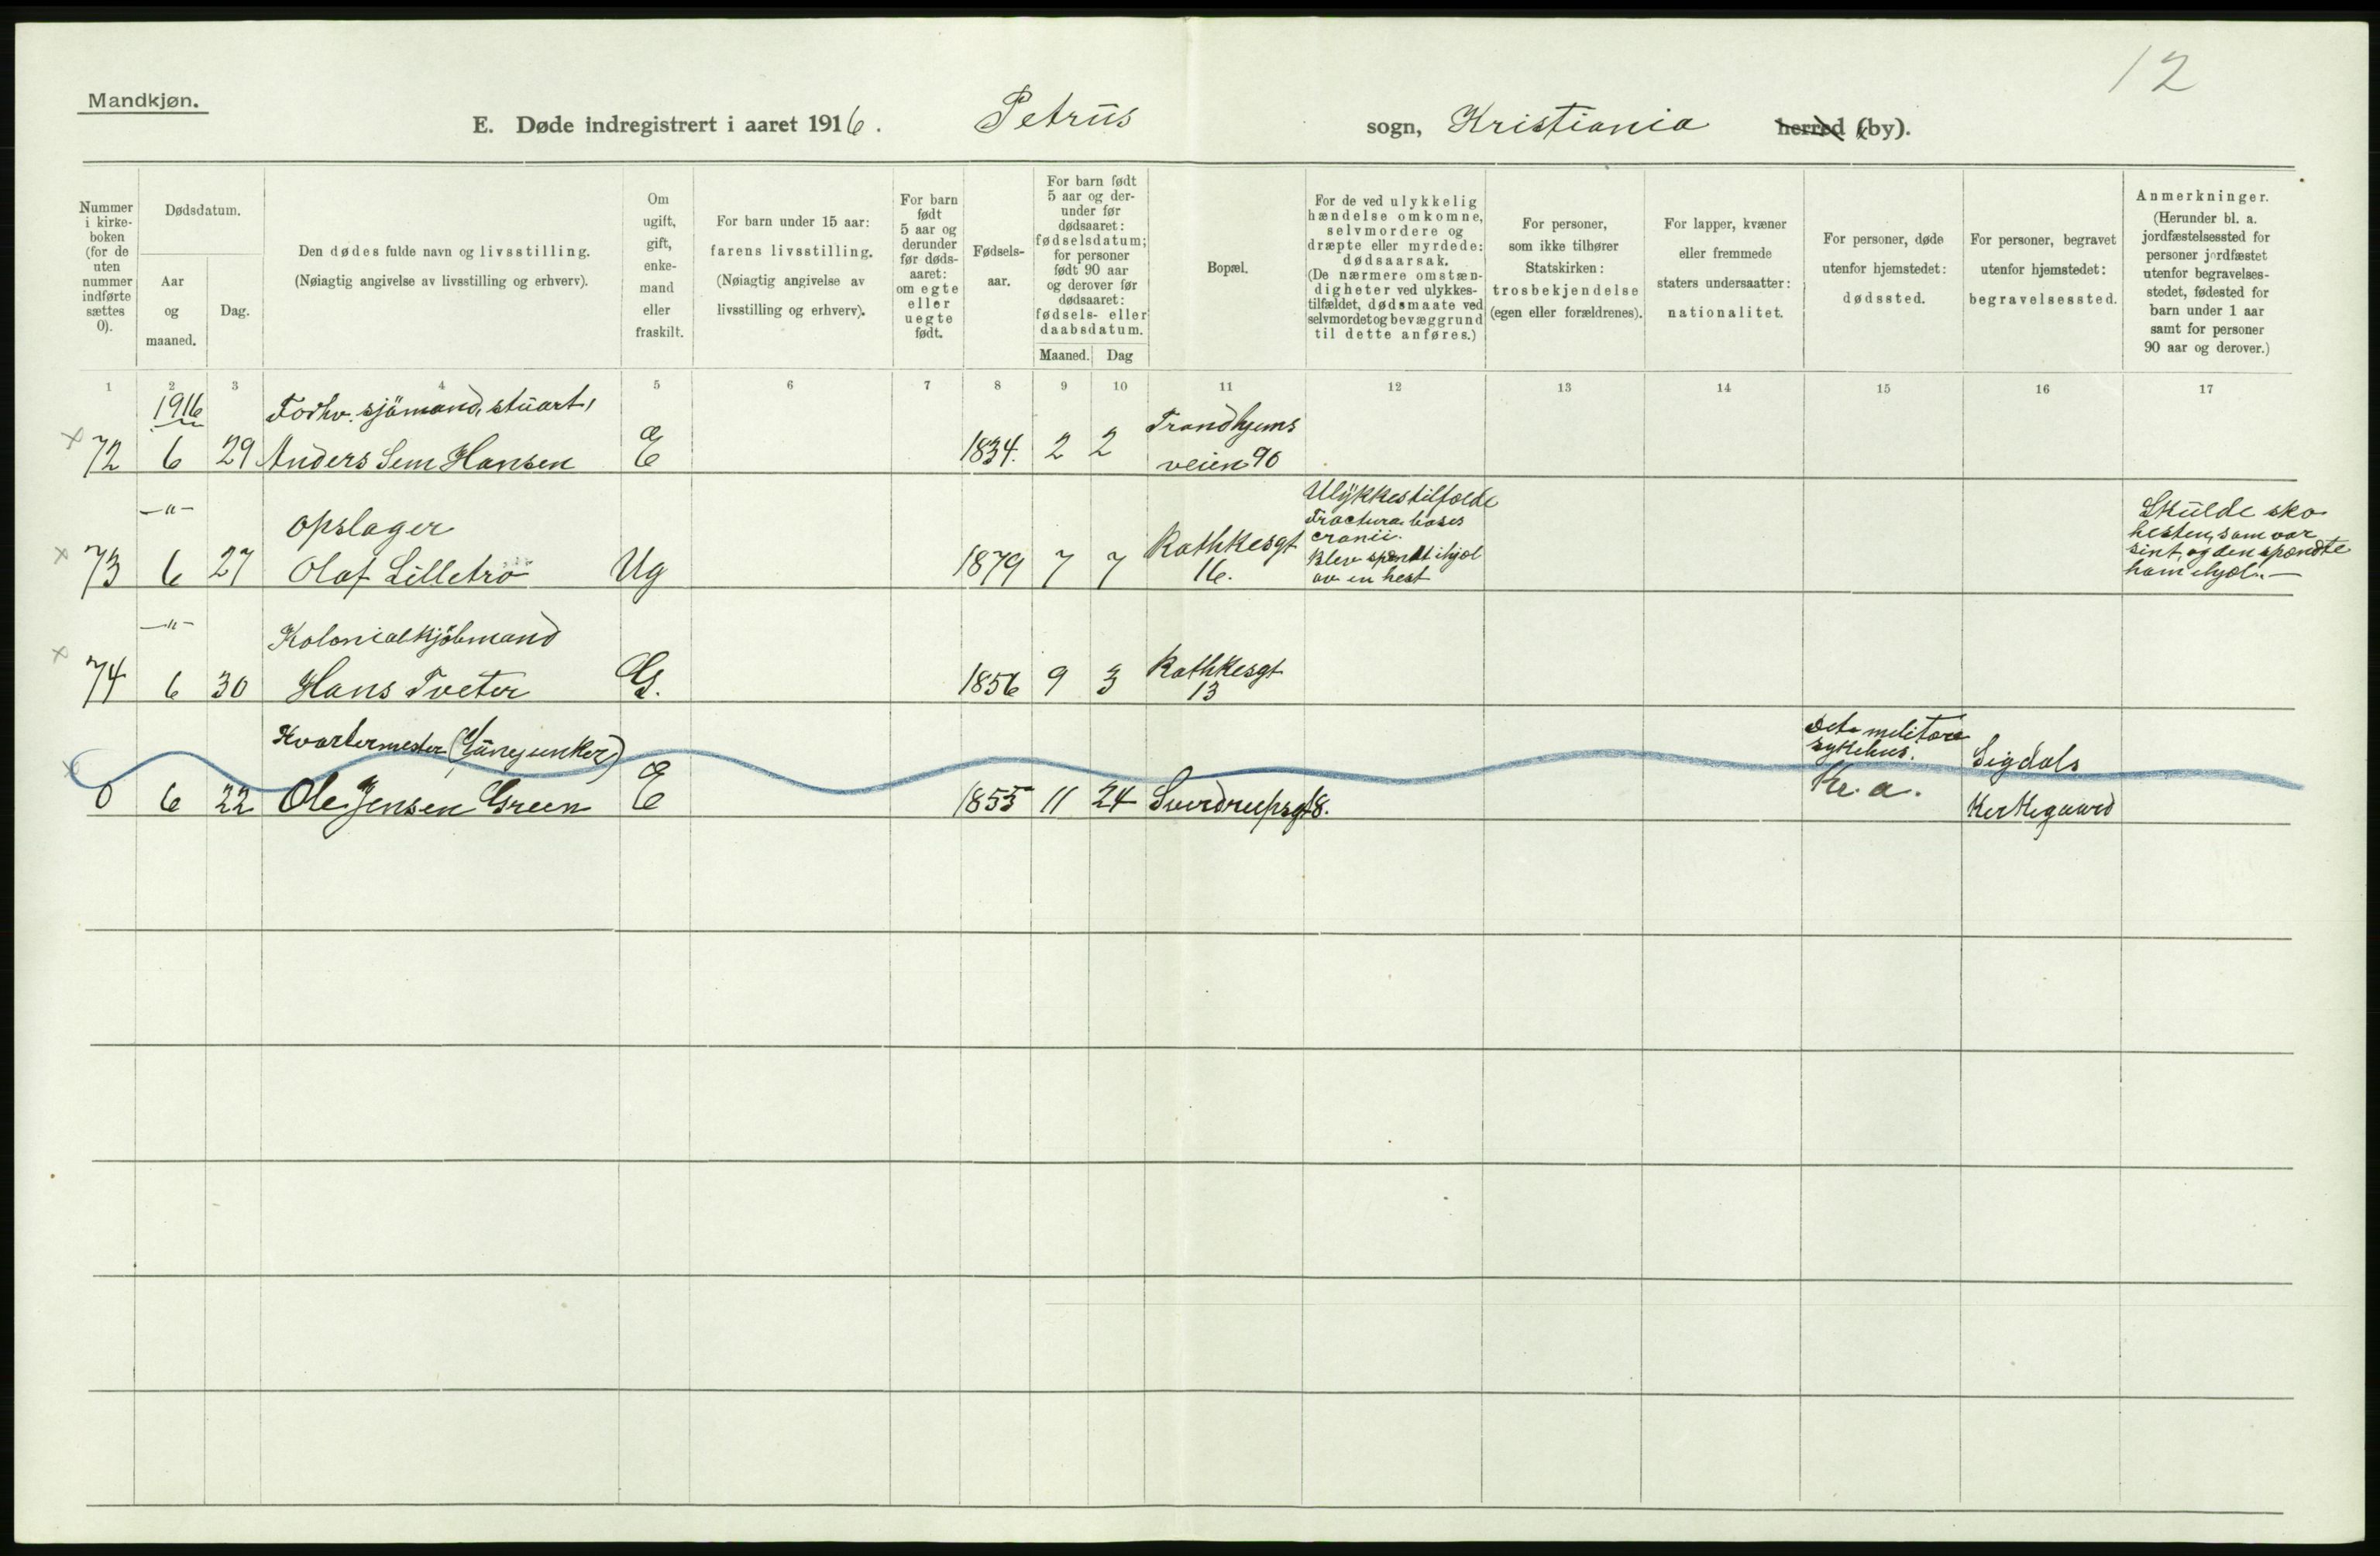 12
Mandkjøn.
E. Døde indregistrert i aaret 1916. Petrus sogn, Kristiania herred (by).
Nummer i kirke-boken (for de uten nummer indførte sættes 0).
Dødsdatum.
Aar og maaned.
Dag.
Den dødes fulde navn og livsstilling.
(Nøiagtig angivelse av livsstilling og erhverv).
Om ugift, gift, enke-mand eller fraskilt.
For barn under 15 aar:
farens livsstilling.
(Nøiagtig angivelse av
livsstilling og erhverv).
For barn født 5 aar og derunder før døds-aaret: om egte eller uegte født.
Fødsels-aar.
For barn født 5 aar og der-under før dødsaaret: fødselsdatum; for personer født 90 aar og derover før dødsaaret: fødsels- eller daabsdatum.
Maaned. Dag
Bopæl.
For de ved ulykkelig hændelse omkomne, selvmordere og dræpte eller myrdede: dødsaarsak.
(De nærmere omstæn-digheter ved ulykkes-tilfældet, dødsmaate ved selvmordet og bevæggrund til dette anføres.)
For personer, som ikke tilhører Statskirken: trosbekjendelse (egen eller forældrenes).
For lapper, kvæner eller fremmede staters undersaatter: nationalitet.
For personer, døde utenfor hjemstedet: dødssted.
For personer, begravet utenfor hjemstedet: begravelsessted.
Anmerkninger.
(Herunder bl. a. jordfæstelsessted for personer jordfæstet utenfor begravelses-stedet, fødested for barn under 1 aar samt for personer 90 aar og derover.)
1 2 3 4 5 6 7 8 9 10 11 12 13 14 15 16 17
1916 Forhv. sjömand, stuart, Trondhjems
72 6 29 Anders Sem Hansen E 1834. 2 2 veien 90
—"— Opslager
73 6 27 Olaf Lilletrö Ug 1879 7 7 Rathkesgt 16.
Ulykkestilfælde
Fractura basis
cranii.
Blev spændt ihjel
av en hest
Skulde sko
hesten, som var
sint, og den spændte
ham ihjel. —
—"— Kolonialkjöbmand
74 6 30 Hans Tveter G. 1856 9 3 Rathkesgt 13
Kvartermester
0 6 22 Ole Jensen Green E 1855 11 24 Sverdrupsgt 8.
Det militære
sykehus.
Kr.a.
Sigdals
Kirkegaard